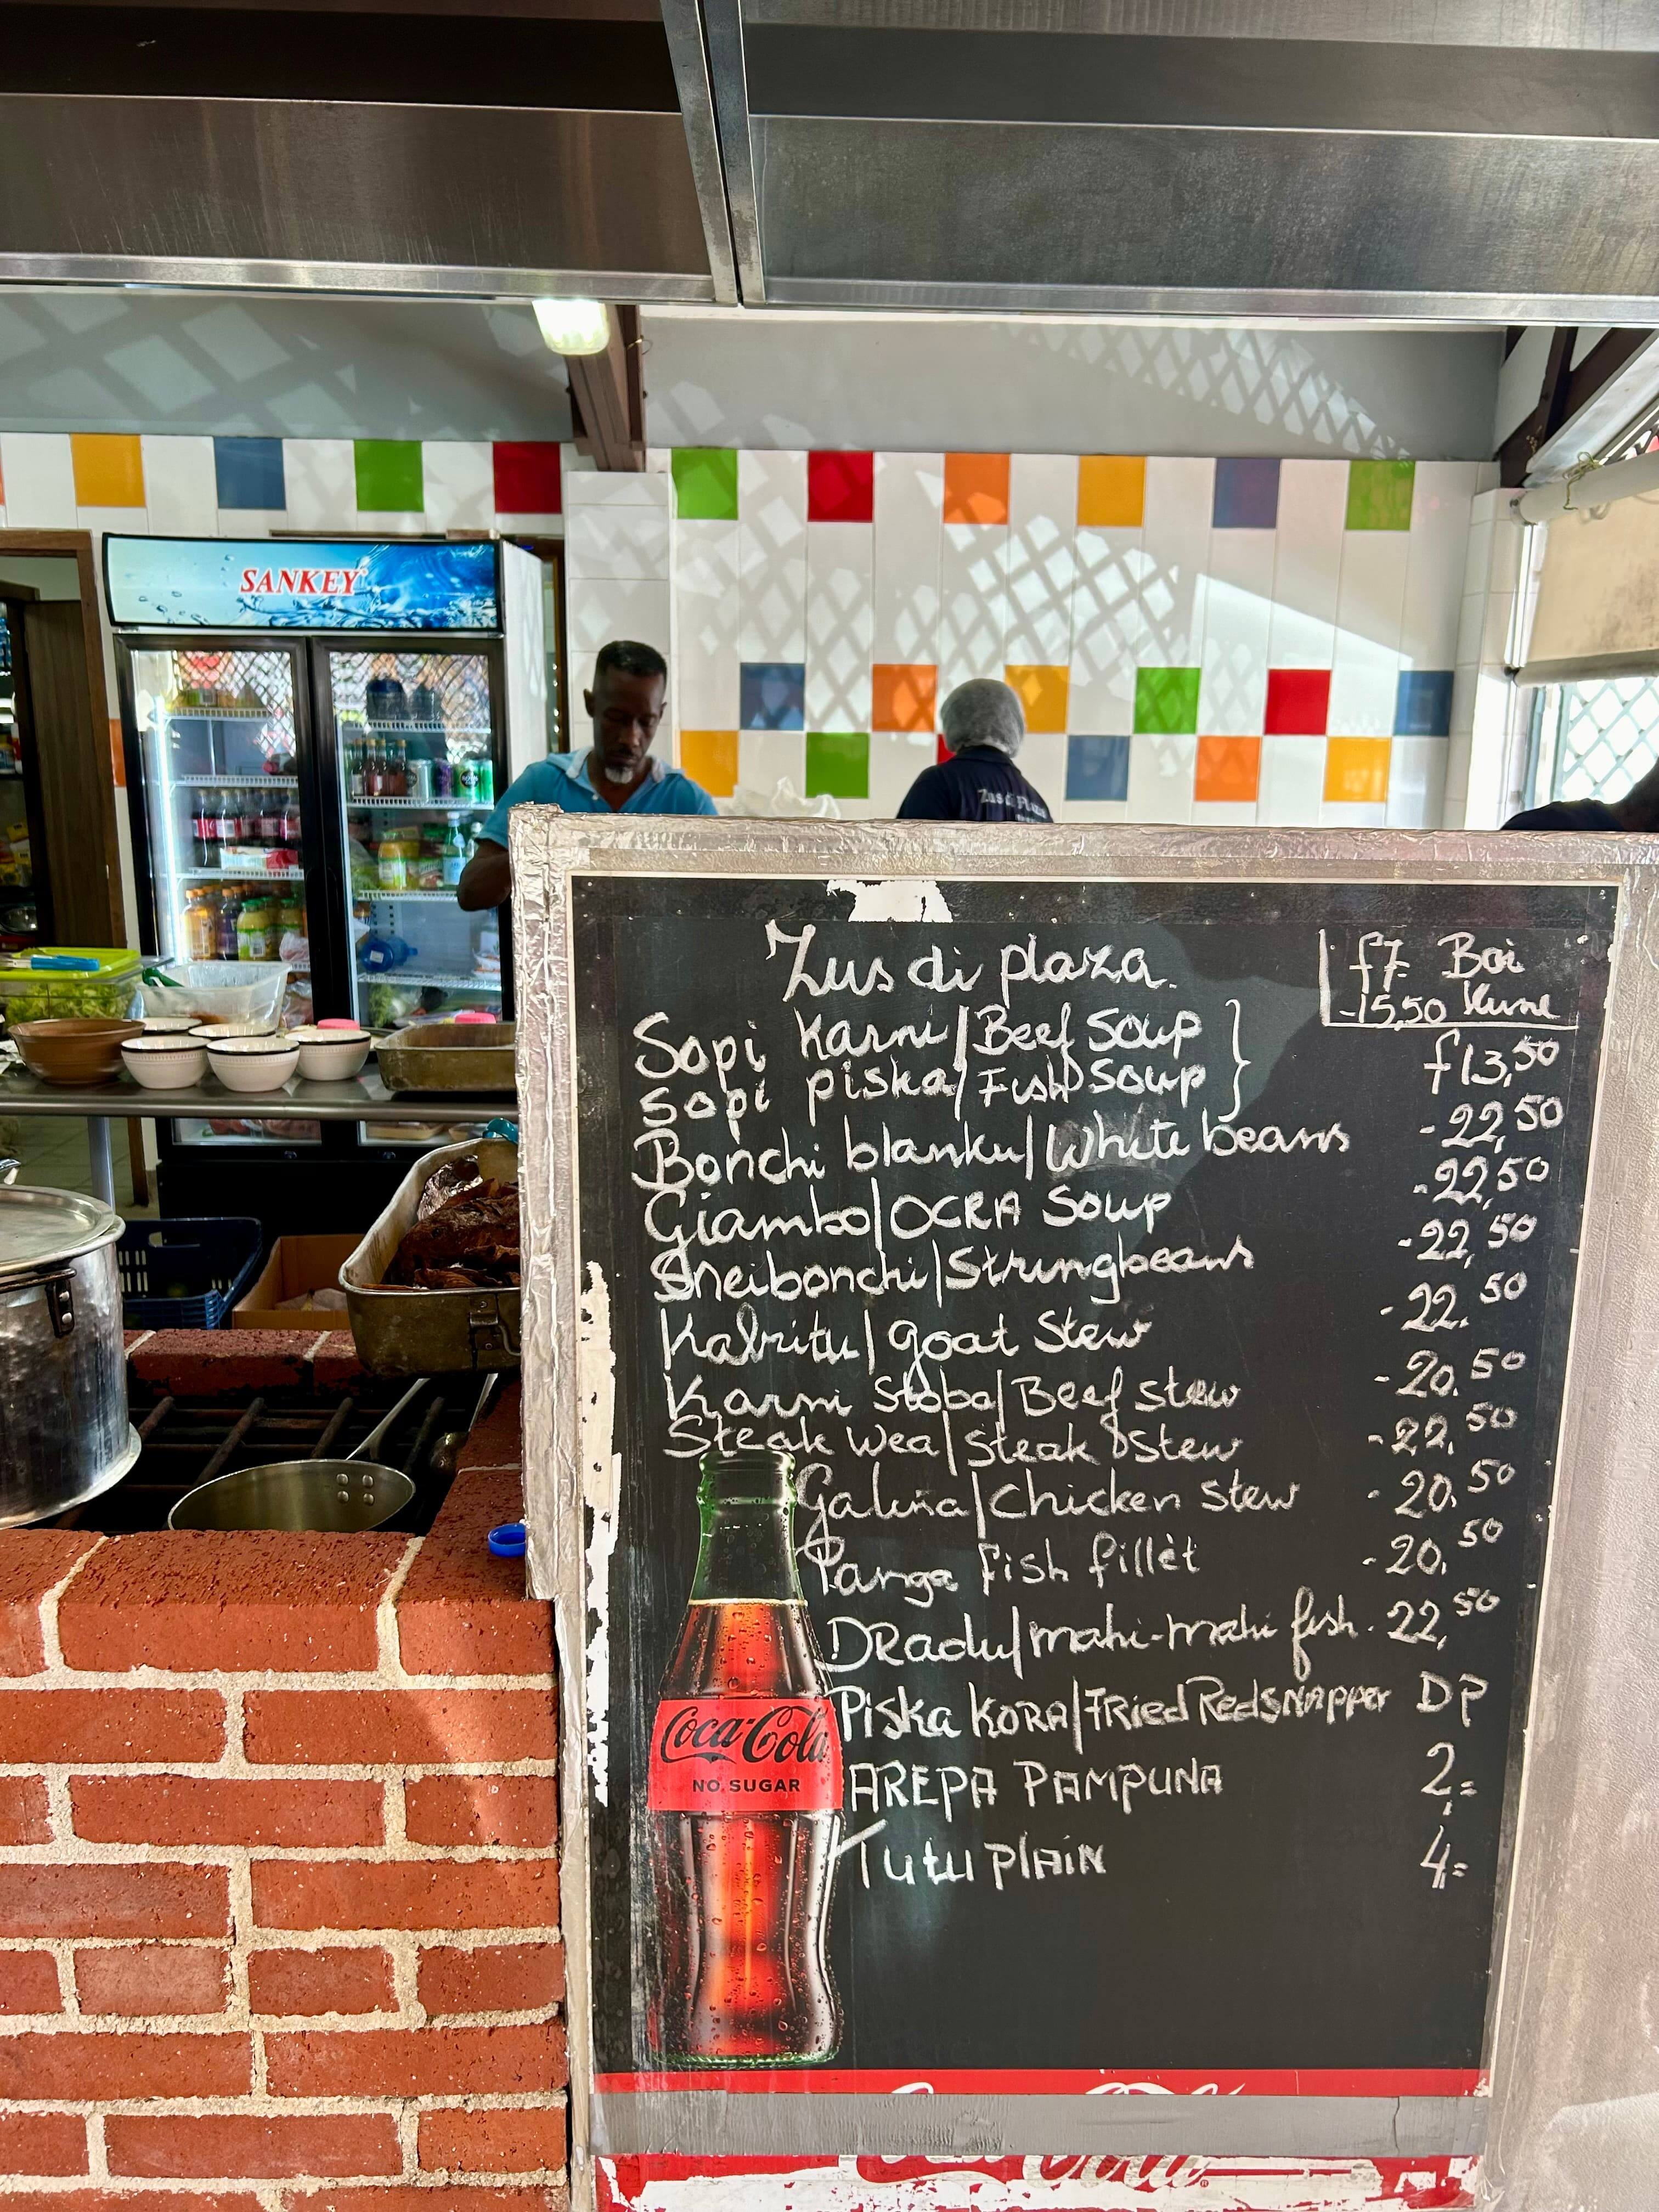 SANKEY
Zus di Pla
Zus di plaza.
f7- Boi
-15,50 Kume
Sopi Karni/Beef Soup
Sopi piska/Fish Soup } f13,50
Bonchi blanku/White beans -22,50
Giambo/OCRA Soup -22,50
Sneibonchi/Stringbeans -22,50
Kabritu/goat Stew -22.50
Karni Stoba/Beef stew -20.50
Steak Wea/Steak Stew -22,50
Galiña/Chicken Stew -20,50
Panga fish fillèt -20,50
DRadu/mahi-mahi fish. 22,50
Piska KORA/FRied RedSNApper DP
AREPA PAMPUNA 2,=
Tutu plAiN 4=
Coca-Cola
NO SUGAR
Coca-Cola